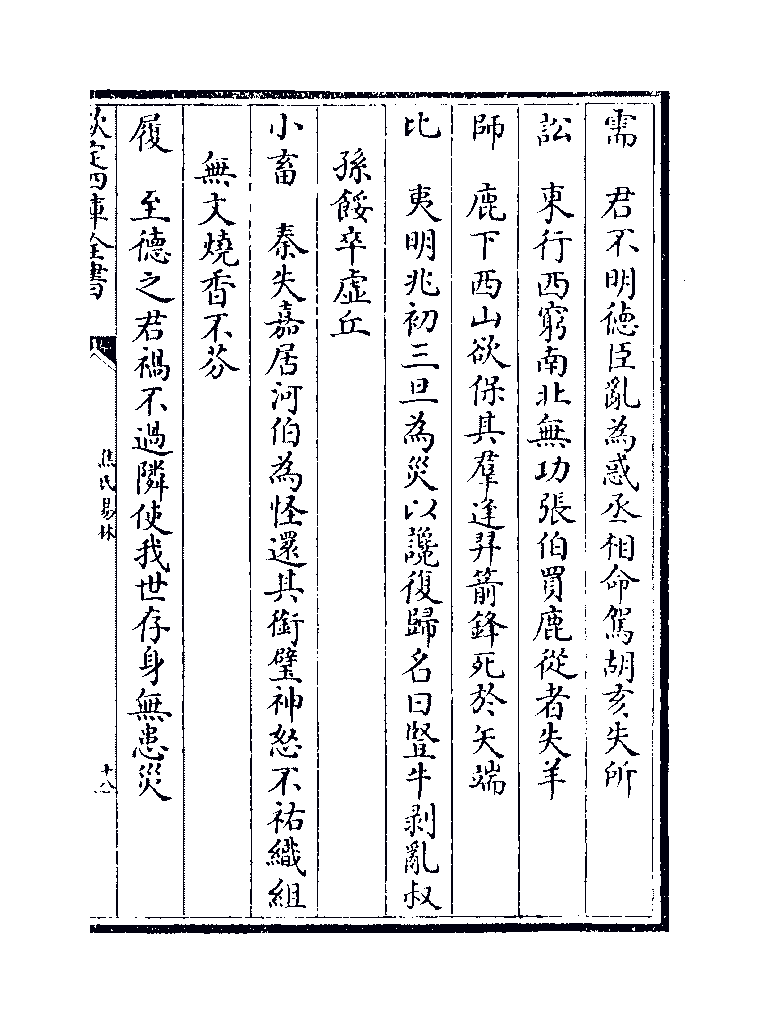 需　君不明德臣亂為惑丞相命駕胡亥失所
訟　東行西窮南北無功張伯買鹿從者失羊
師　鹿下西山欲保其羣逢羿箭鋒死於矢端
比　夷明兆初三旦為災以讒復歸名曰豎牛剥亂叔
孫餒卒虛丘
小畜　秦失嘉居河伯為怪還其銜璧神怒不祐織組
無文燒香不芬
履　至德之君禍不過隣使我世存身無患災
欽定四庫全書
焦氏易林
十八